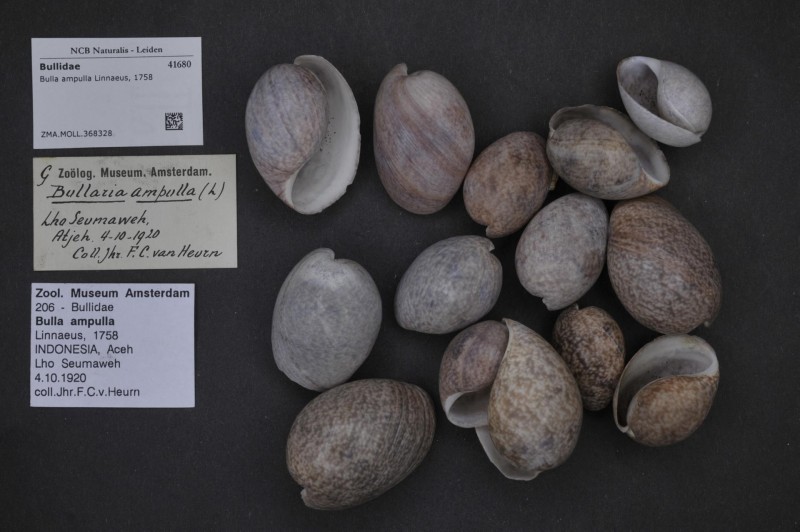 NCB Naturalis - Leiden
Bullidae 41680
Bulla ampulla Linnaeus, 1758
ZMA.MOLL.368328
G Zoölog. Museum. Amsterdam.
Bullaria ampulla (L)
Lho Seumaweh,
Atjeh. 4-10-1920
Coll. Jhr. F. C. van Heurn
Zool. Museum Amsterdam
206 - Bullidae
Bulla ampulla
Linnaeus, 1758
INDONESIA, Aceh
Lho Seumaweh
4.10.1920
coll.Jhr.F.C.v.Heurn